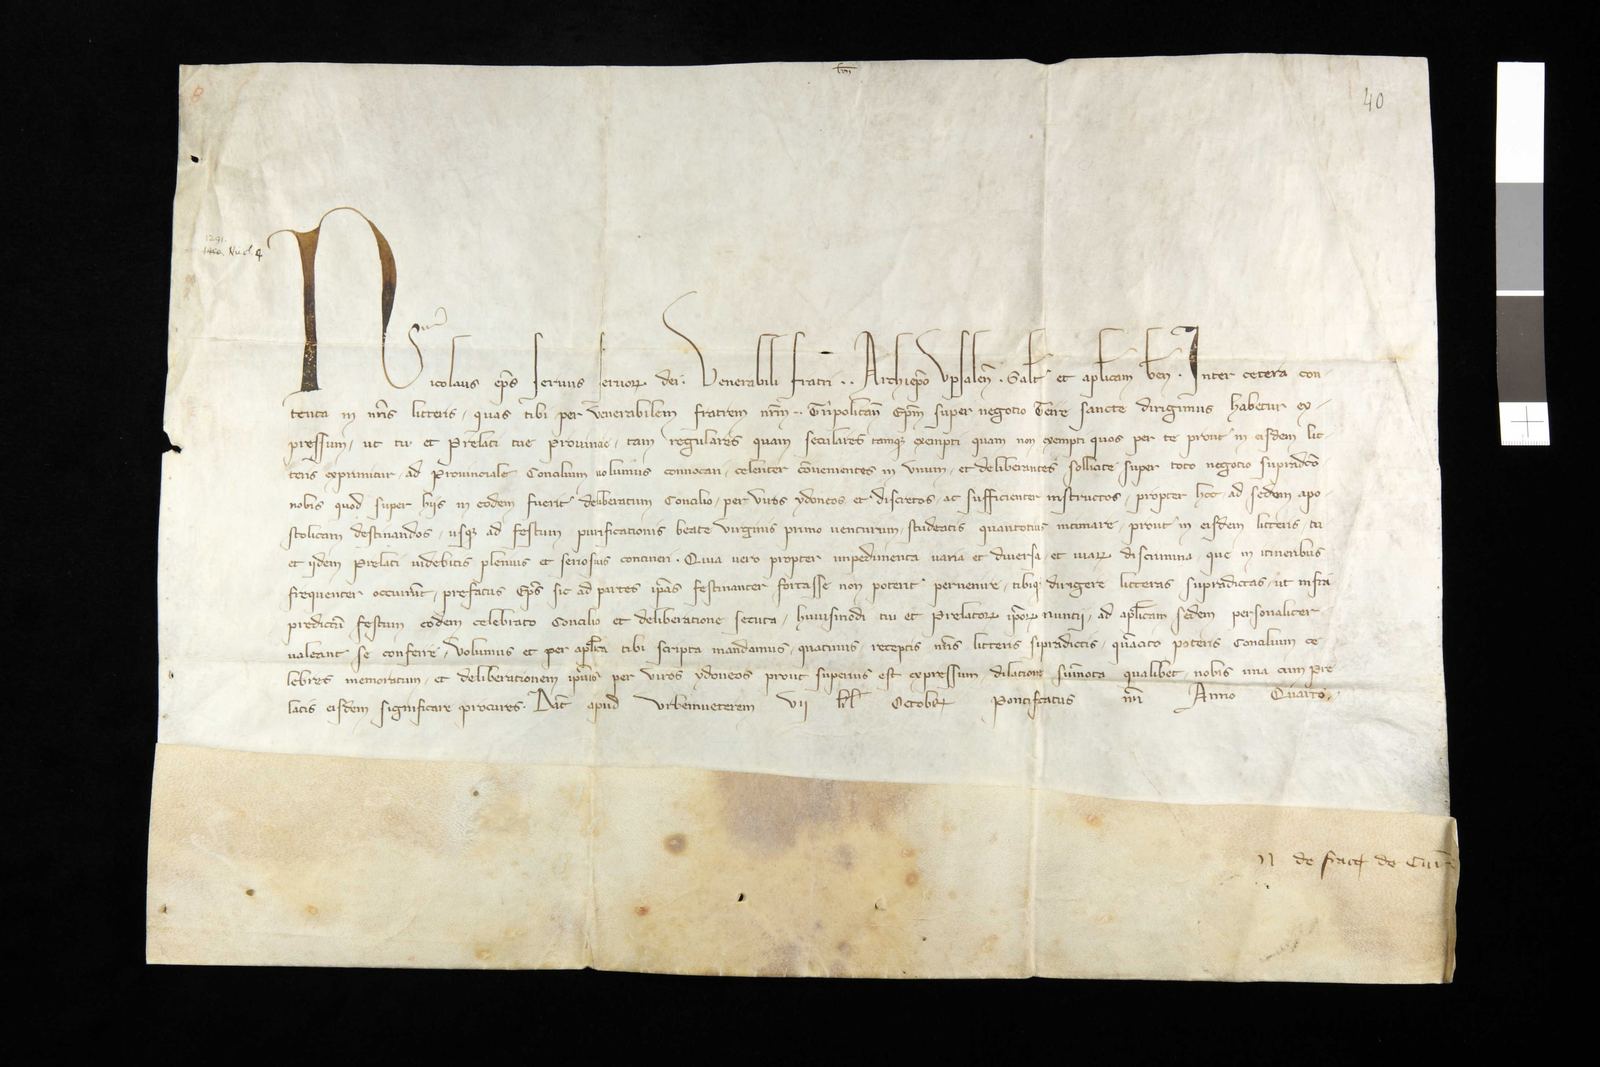 40
1291.
Nicolaus ep̄s seruus seruoꝝ dei. Venerabili fratri .. Archiep̄o Vpsalen̄. Saƚt et apƚicam ben̄. Inter cetera con-
tenta in nr̄is litteris, quas tibi per venerabilem fratrem nr̄m .. Tripolitan̄ Ep̄m super negotio Terre sancte dirigimus habetur ex-
pressum, ut tu et Prelati tue Prouincie, tam regulares quam seculares tamqꝫ exempti quam non exempti quos per te prout in eisdem lit-
teris exprimitur, ad Prouinciale Concilium uolumus conuocari, celeriter conuenientes in unum, et deliberantes sollicite super toto negotio supradc̄o
nobis quod super hiis in eodem fuerit deliberatum Concilio, per viros ydoneos et discretos, ac sufficienter instructos, propter hoc ad sedem apo-
stolicam destinandos, usqꝫ ad festum purificationis beate virginis primo venturum, studeatis quantotius intimare, prout in eisdem litteris, tu
et ijdem Prelati uidebitis plenius et seriosius contineri. Quia uero propter impedimenta varia et diuersa, et uiaꝝ discrimina, que in itineribus
frequenter occurrūt, prefatus Ep̄s sic ad partes ip̄as festinanter fortasse non poterit peruenire, tibiqꝫ dirigere litteras supradictas, ut infra
predictū festum eodem celebrato Concilio et deliberatione secuta, huiusmodi tui et Prelatoꝝ ip̄oꝝ nuntii, ad apƚicam sedem personaliter
ualeant se conferre, Volumus et per apƚica tibi scripta mandamus, quatinus, receptis nr̄is litteris supradictis, quācito poteris Concilium ce
lebres memoratum, et deliberationem ip̄ius per viros ydoneos prout superius est expressum, dilatione sum̄ota qualibet, nobis una cum Pre
latis eisdem significare procures. Dat̄ apud Vrbemueterem vij kƚ Octobꝝ Pontificatus nr̄i Anno Quarto.